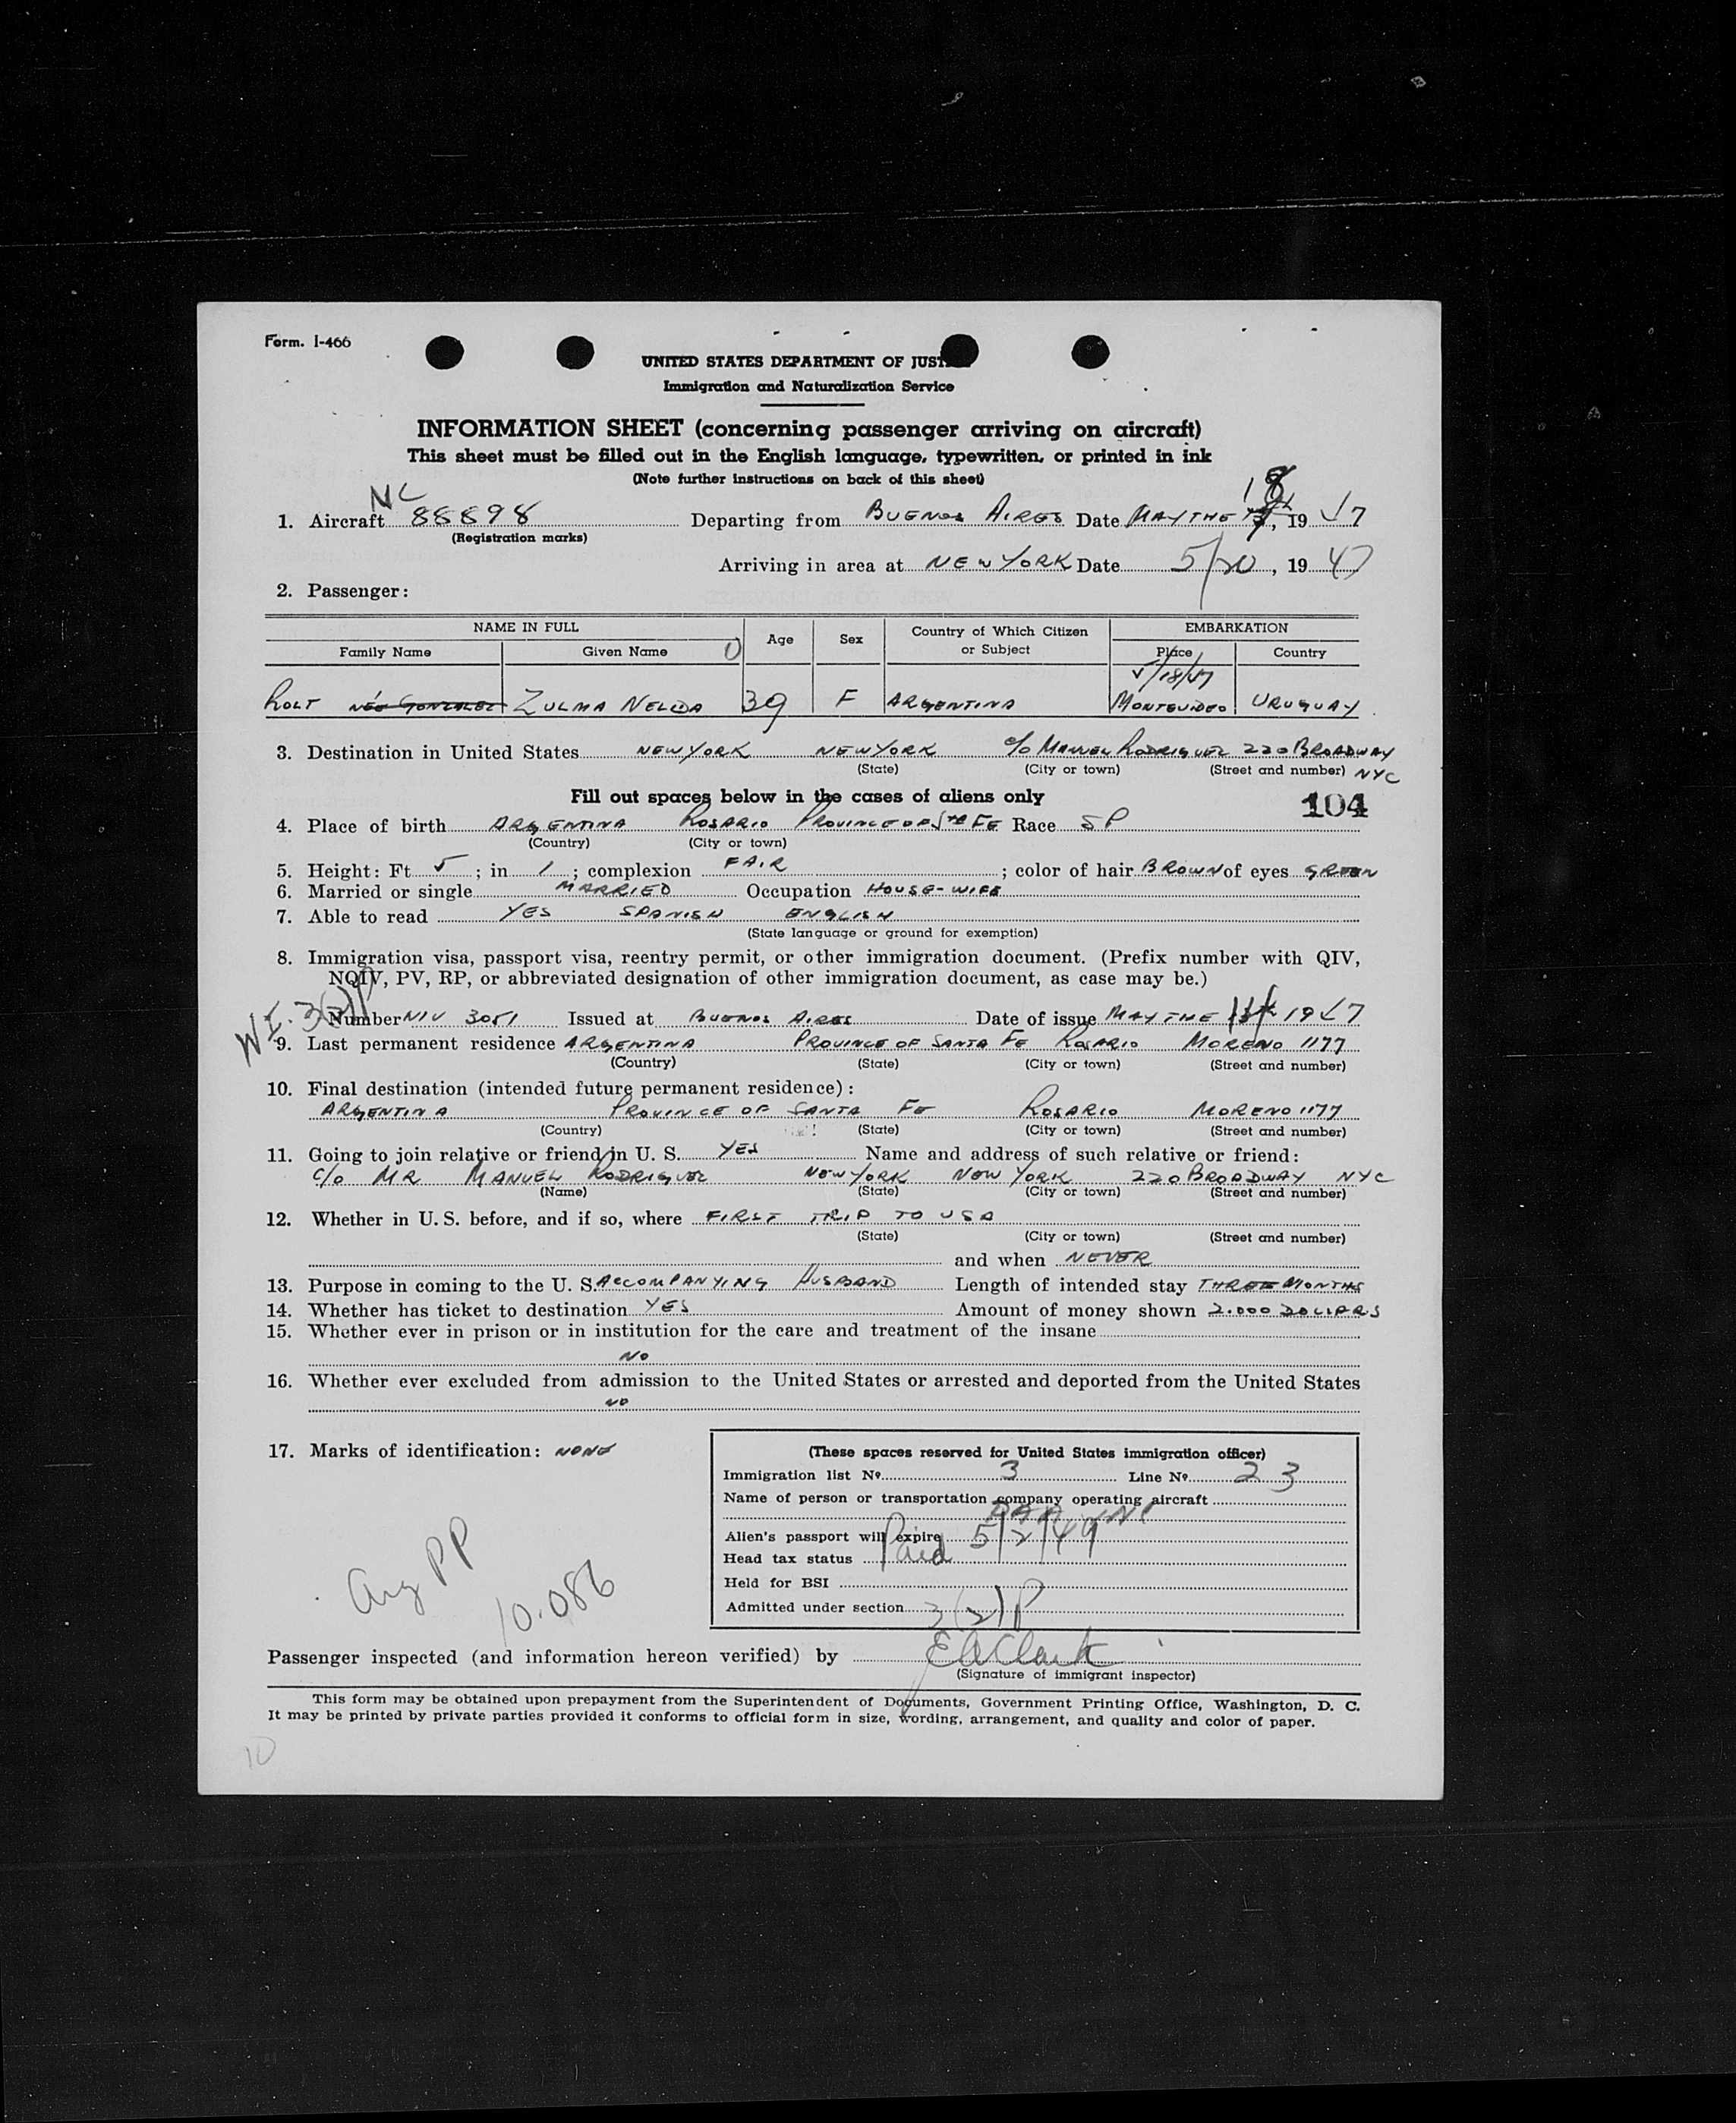 Form. I-466
UNITED STATES DEPARTMENT OF JUST
Immigration and Naturalization Service
INFORMATION SHEET (concerning passenger arriving on aircraft)
This sheet must be filled out in the English language, typewritten, or printed in ink
(Note further instructions on back of this sheet)
NC
18
1. Aircraft 88898 Departing from BUENOS AIRES Date MAY THE , 19 47
(Registration marks)
Arriving in area at NEW YORK Date 5/20, 19 47
2. Passenger:
NAME IN FULL Age Sex Country of Which Citizen or Subject EMBARKATION
Family Name Given Name Place Country
5/18/47
ROLT NÉE GONZALEZ ZULMA NELIDA 39 F ARGENTINA MONTEVIDEO URUGUAY
3. Destination in United States NEW YORK NEW YORK c/o MANUEL RODRIGUEZ 220 BROADWAY
(State) (City or town) (Street and number) NYC
Fill out spaces below in the cases of aliens only 104
4. Place of birth ARGENTINA ROSARIO PROVINCE OF STA FE Race SP
(Country) (City or town)
5. Height: Ft 5; in 1; complexion FAIR; color of hair BROWN of eyes GREEN
6. Married or single MARRIED Occupation HOUSE-WIFE
7. Able to read YES SPANISH ENGLISH
(State language or ground for exemption)
8. Immigration visa, passport visa, reentry permit, or other immigration document. (Prefix number with QIV,
NQIV, PV, RP, or abbreviated designation of other immigration document, as case may be.)
3(2)P
Number NIV 3051 Issued at BUENOS AIRES Date of issue MAY THE 1947
9. Last permanent residence ARGENTINA PROVINCE OF SANTA FE ROSARIO MORENO 1177
(Country) (State) (City or town) (Street and number)
10. Final destination (intended future permanent residence):
ARGENTINA PROVINCE OF SANTA FE ROSARIO MORENO 1177
(Country) (State) (City or town) (Street and number)
11. Going to join relative or friend in U. S. YES Name and address of such relative or friend:
c/o MR MANUEL RODRIGUEZ NEW YORK NEW YORK 220 BROADWAY NYC
(Name) (State) (City or town) (Street and number)
12. Whether in U. S. before, and if so, where FIRST TRIP TO USA
(State) (City or town) (Street and number)
and when NEVER
13. Purpose in coming to the U. S. ACCOMPANYING HUSBAND Length of intended stay THREE MONTHS
14. Whether has ticket to destination YES Amount of money shown 2.000 DOLLARS
15. Whether ever in prison or in institution for the care and treatment of the insane
NO
16. Whether ever excluded from admission to the United States or arrested and deported from the United States
NO
17. Marks of identification: NONE
(These spaces reserved for United States immigration officer)
Immigration list No. 3 Line No. 23
Name of person or transportation company operating aircraft
PAA INC
Alien's passport will expire 5/2/49
Head tax status Paid
Held for BSI
Admitted under section 3(2)P
Arg PP
10.086
Passenger inspected (and information hereon verified) by E A Clark
(Signature of immigrant inspector)
This form may be obtained upon prepayment from the Superintendent of Documents, Government Printing Office, Washington, D. C.
It may be printed by private parties provided it conforms to official form in size, wording, arrangement, and quality and color of paper.
10